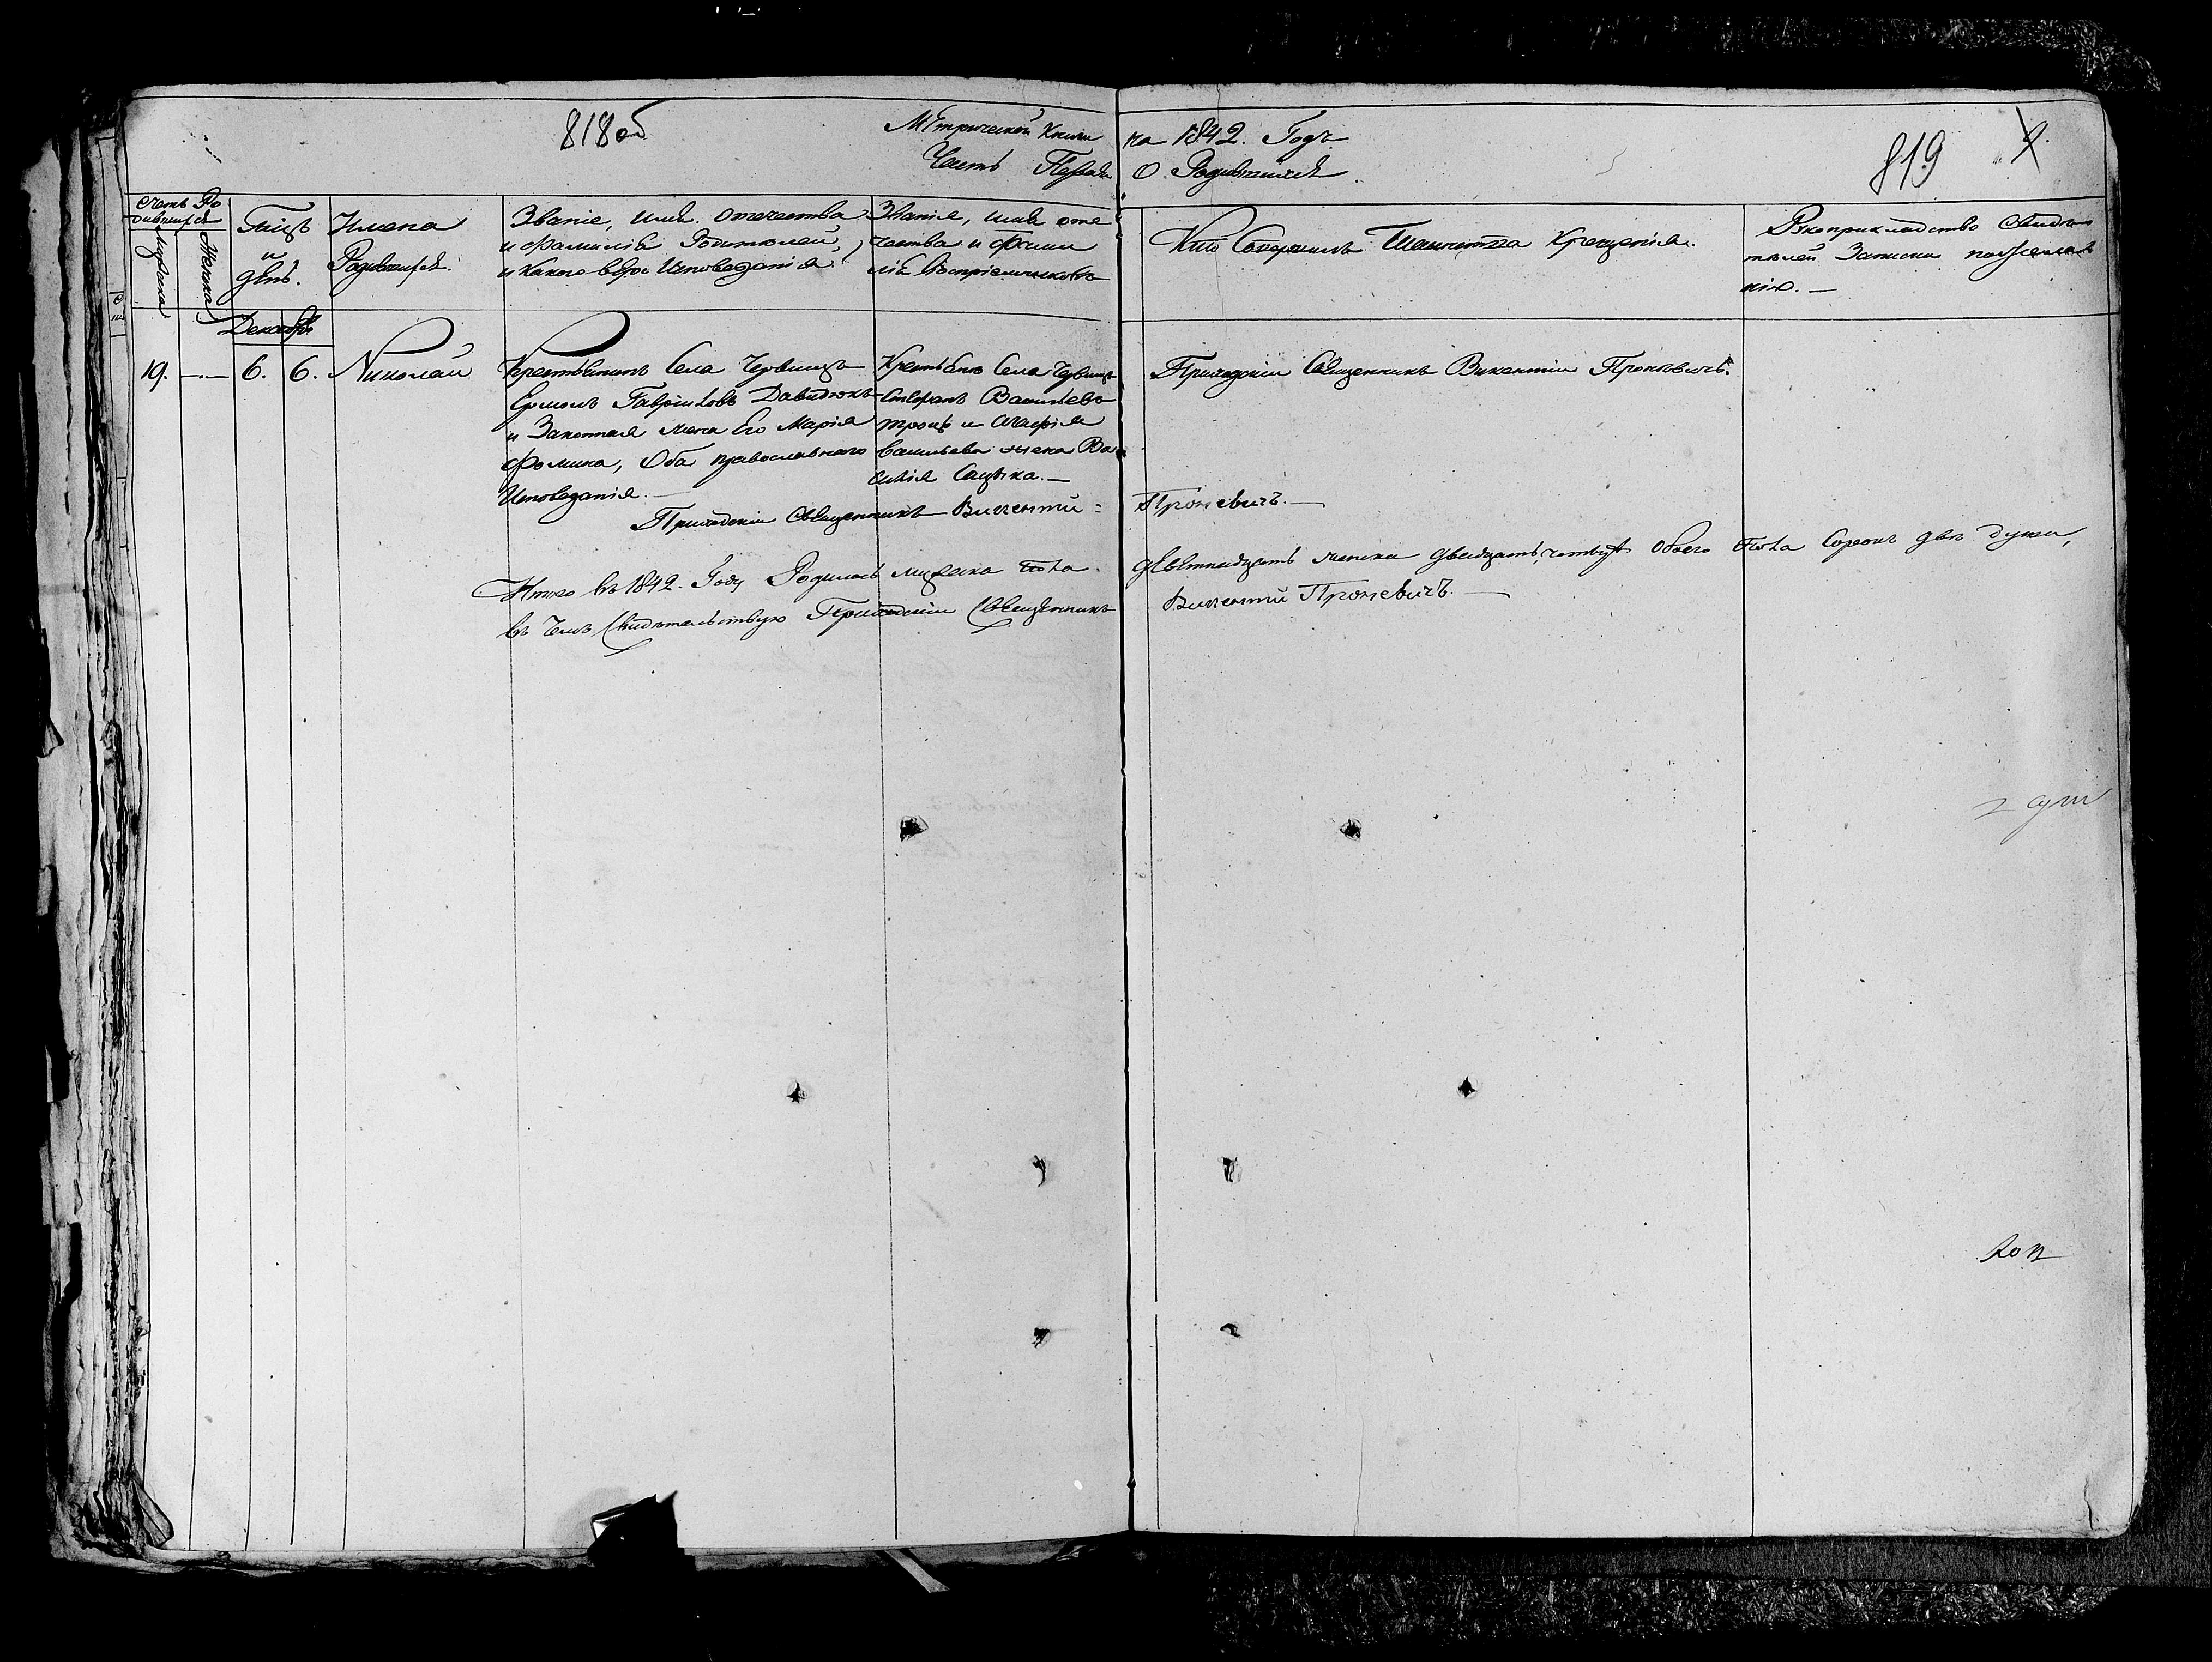 818об
Метрической Книги на 1842. Годъ
Часть Первая О Родившихся
819
9.
Счетъ Ро
дившихся
Мужеска
Женска
Мѣсяцъ
и
день.
Имена
Родившихся.
Званіе, имя, отечества
и фамилія Родителей,
и какого вѣроисповеданія.
Званія, имя, оте
чества и фами
лія Воспріемниковъ
Кто Совершилъ Таинства Крещенія.
Рукоприкладство Свидѣ
телей Записки по желанію. —
Декабрь
19. —.— 6. 6. Николай
Крестьянинъ Села Червищъ
Гавріиловъ Давидюкъ
и Законная жена Его Марія
Фомина, Оба православнаго
Исповеданія. —
Крестьяне Села Червищъ
Стефанъ Васильевъ
и
Васильева жена Ва
силія —
Приходскій Священникъ Викентій Проневичъ.
Приходскій Священникъ Викентій = Проневичъ. —
Итого въ 1842. Году Родилось мужеска пола. женска двадцать четыре обоего пола Сорокъ двѣ души,
въ чемъ Свидѣтельствую Приходскій Священникъ Викентій Проневичъ. —